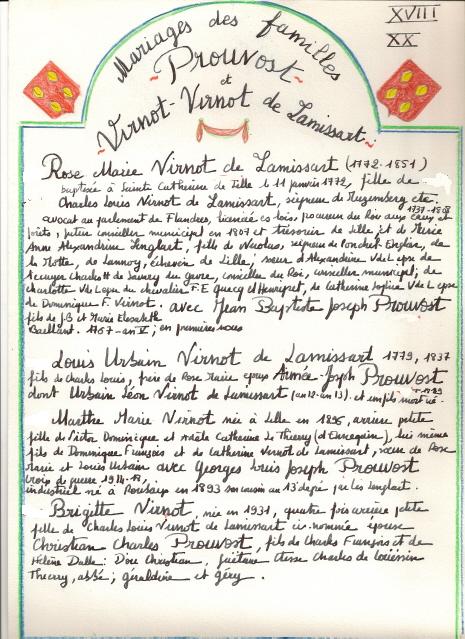 XVIII
XX
Mariages des familles
Prouvost
et
Virnot-Virnot de Lamissart
Rose Marie Virnot de Lamissart (1772-1851)
baptisée à Sainte Catherine de Lille le 11 janvier 1772, fille de
Charles Louis Virnot de Lamissart, seigneur de
avocat au parlement de Flandres, licencié es lois, procureur du Roi aux eaux et
forêts; conseiller municipal en 1807 et trésorier de Lille, et de Marie
Anne Alexandrine Lenglart, fille de Nicolas, seigneur de
la Motte, de Lannoy, échevin de Lille, sœur d'Alexandrine
écuyer Charles du Gavre, conseiller du Roi, conseiller municipal; de
Charlotte du chevalier F.E. et Henriquet, de Catherine Sophie
de Dominique F. Virnot. avec Jean Baptiste Joseph Prouvost
fils de JB et Marie Elisabeth
Baillant. 1767-an V; en premières noces
Louis Urbain Virnot de Lamissart 1779, 1837
fils de Charles Louis, frère de Rose Marie épouse Joseph Prouvost
dont Urbain Léon Virnot de Lamissart (an 12-an 13). et un fils mort né.
Marthe Marie Virnot née à Lille en 1896, arrière petite
fille de Victor Dominique et Adèle Catherine Le Thierry (d'Ennequin), lui même
fils de Dominique François et de Catherine Virnot de Lamissart, sœur de Rose
Marie et Louis Urbain avec Georges Louis Joseph Prouvost
croix de guerre 1914-18,
industriel né à Roubaix en 1893 son cousin au 13e degré par les Lenglart.
Brigitte Virnot, née en 1931, quatre fois arrière petite
fille de Charles Louis Virnot de Lamissart ci-nommé épouse
Christian Charles Prouvost, fils de Charles François et de
Hélène Dalle: D'où Christian, Ctesse Charles de
Thierry, abbé; Géraldine et Géry.